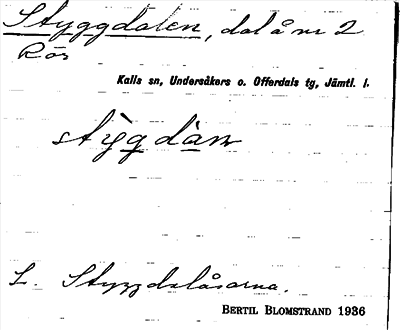 Styggdalen, dal å nr 2
Rös
Kalls sn, Undersåkers o. Offerdals tg, Jämtl. l.
stỳgdàn
L. Styggdalåsarna.
BERTIL BLOMSTRAND 1936